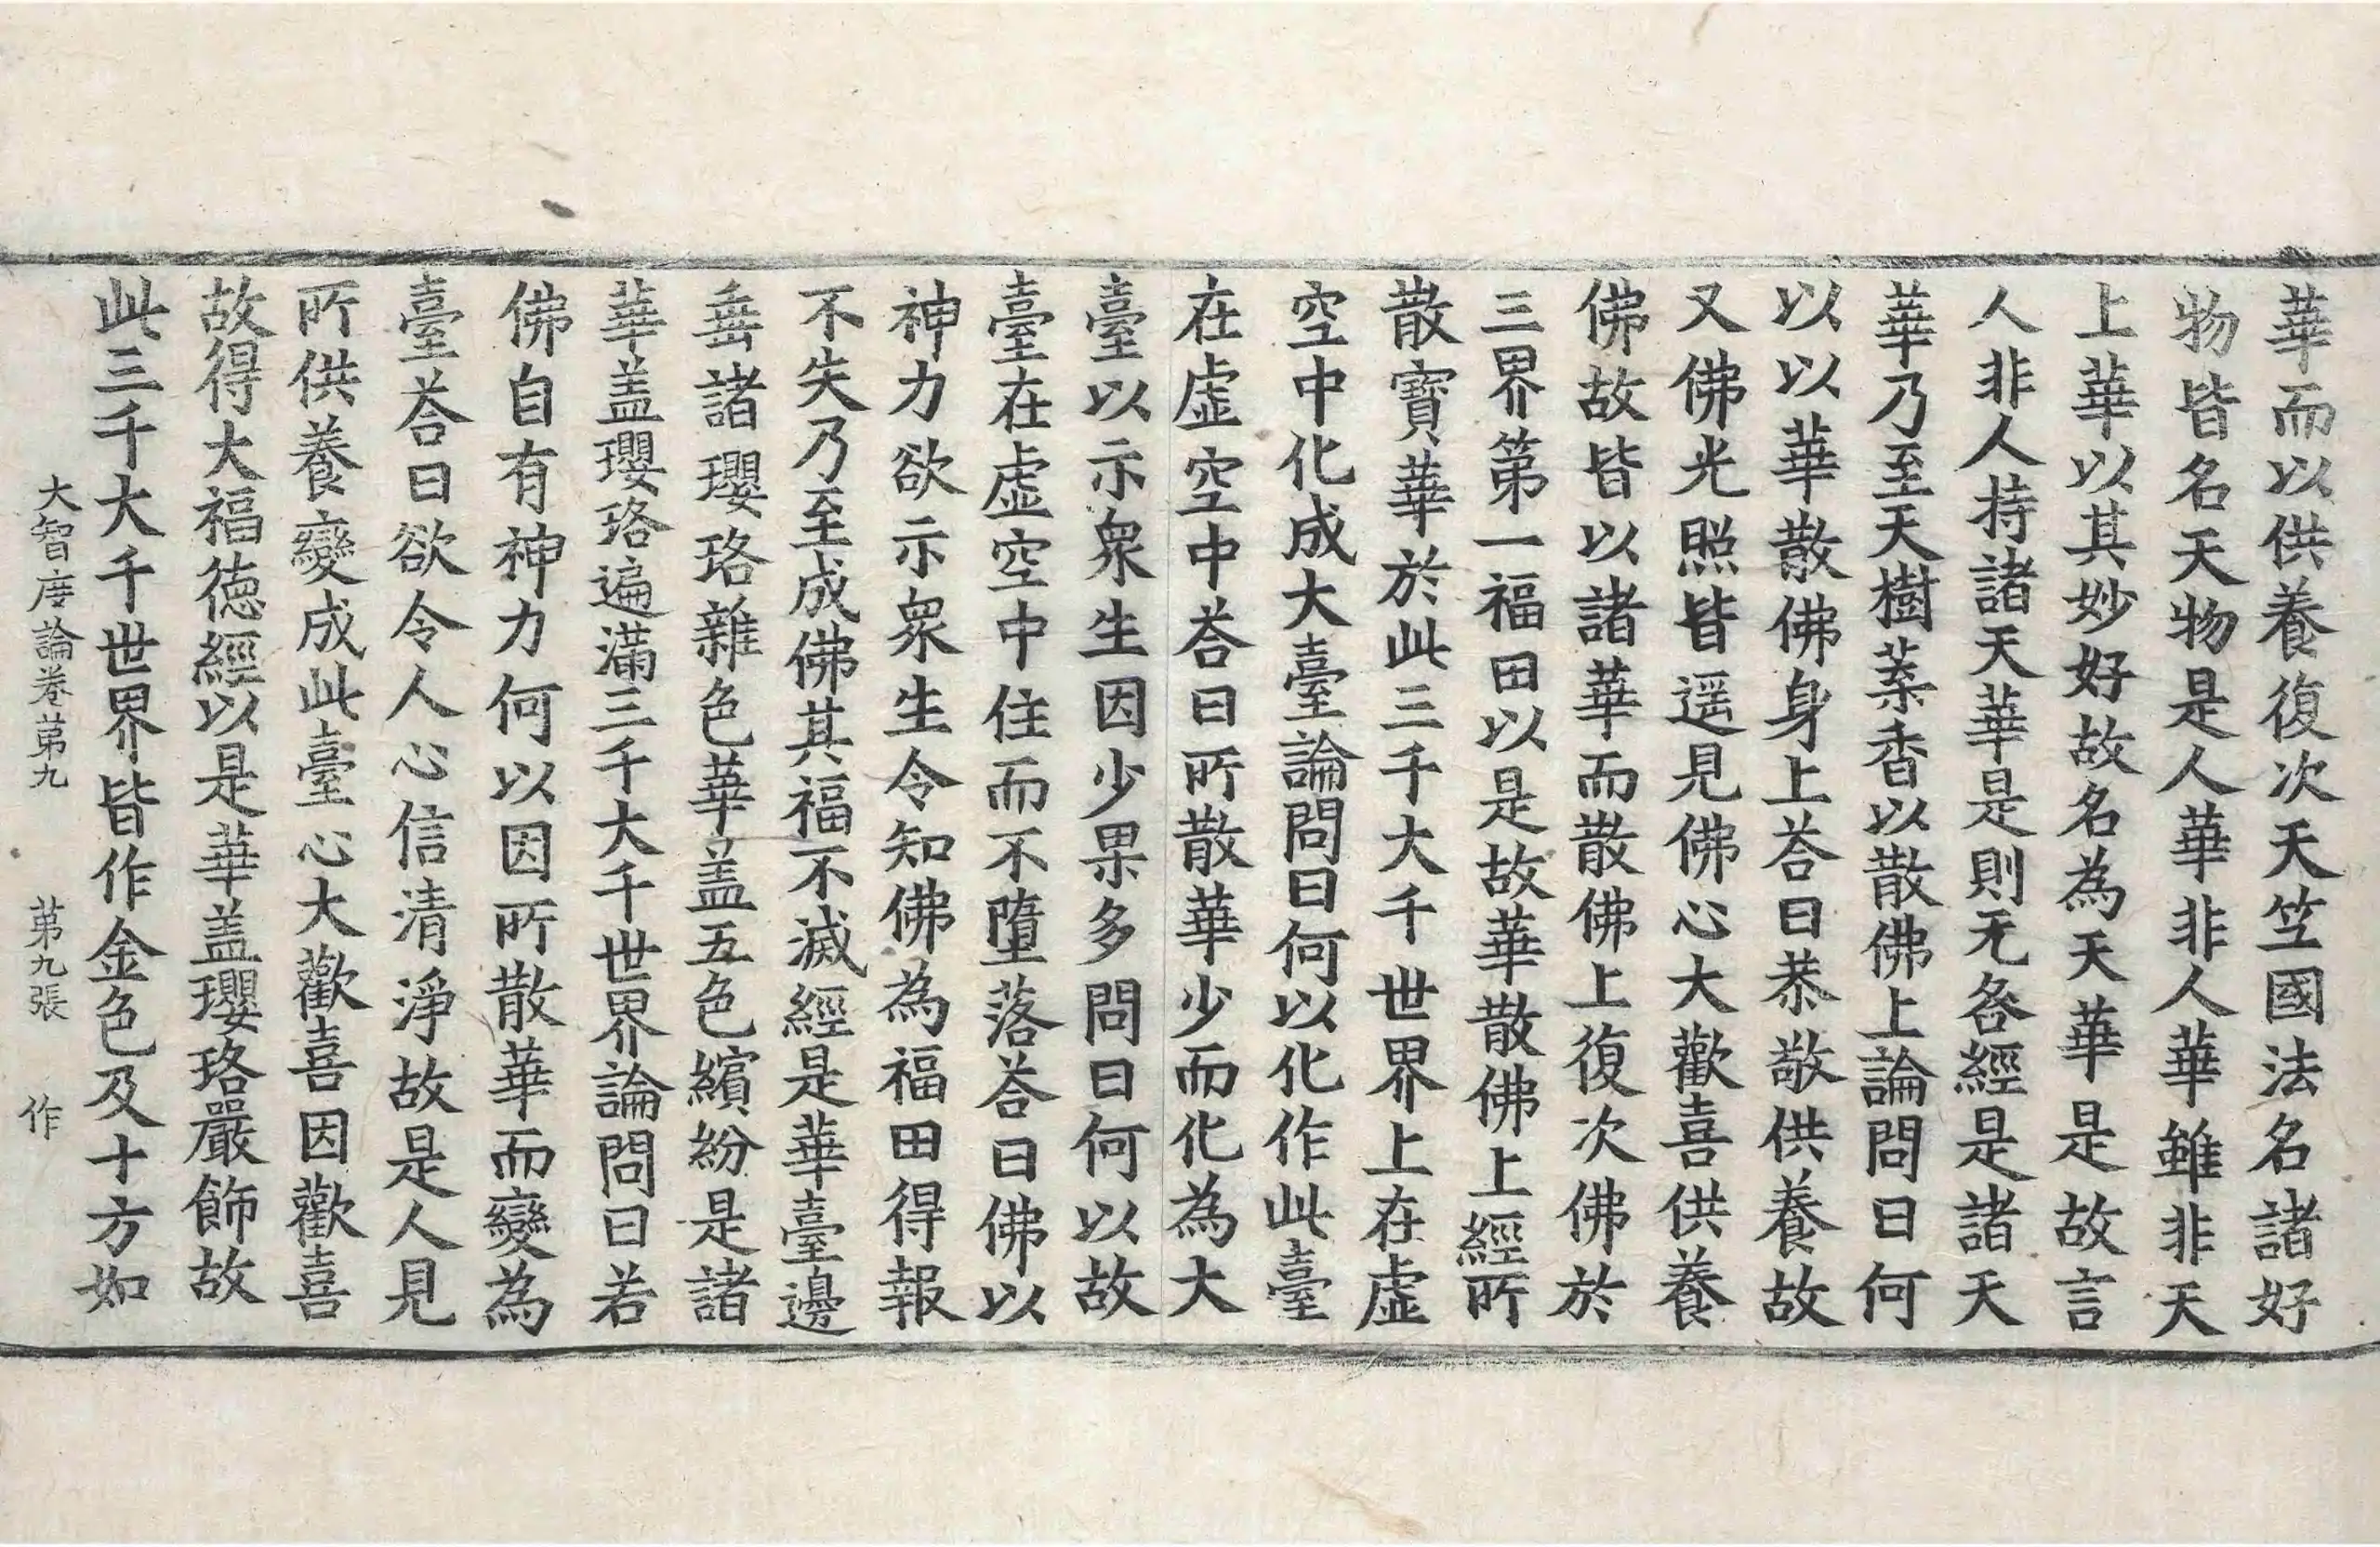 華而以供養復次天竺國法名諸好
物皆名天物是人華非人華雖非天
上華以其妙好故名為天華是故言
人非人持諸天華是則无咎經是諸天
華乃至天樹葉香以散佛上論問曰何
以以華散佛身上荅曰恭敬供養故
又佛光照皆遥見佛心大歡喜供養
佛故皆以諸華而散佛上復次佛於
三界第一福田以是故華散佛上經所
散寶華於此三千大千世界上在虛
空中化成大臺論問曰何以化作此臺
在虛空中荅曰所散華少而化為大
臺以示衆生因少果多問曰何以故
臺在虛空中住而不墮落荅曰佛以
神力欲示衆生令知佛為福田得報
不失乃至成佛其福不滅經是華臺邊
垂諸瓔珞雜色華盖五色繽紛是諸
華盖瓔珞遍滿三千大千世界論問曰若
佛自有神力何以因所散華而變為
臺荅曰欲令人心信清淨故是人見
所供養變成此臺心大歡喜因歡喜
故得大福德經以是華盖瓔珞嚴飾故
此三千大千世界皆作金色及十方如
大智度論卷苐九 苐九張 作